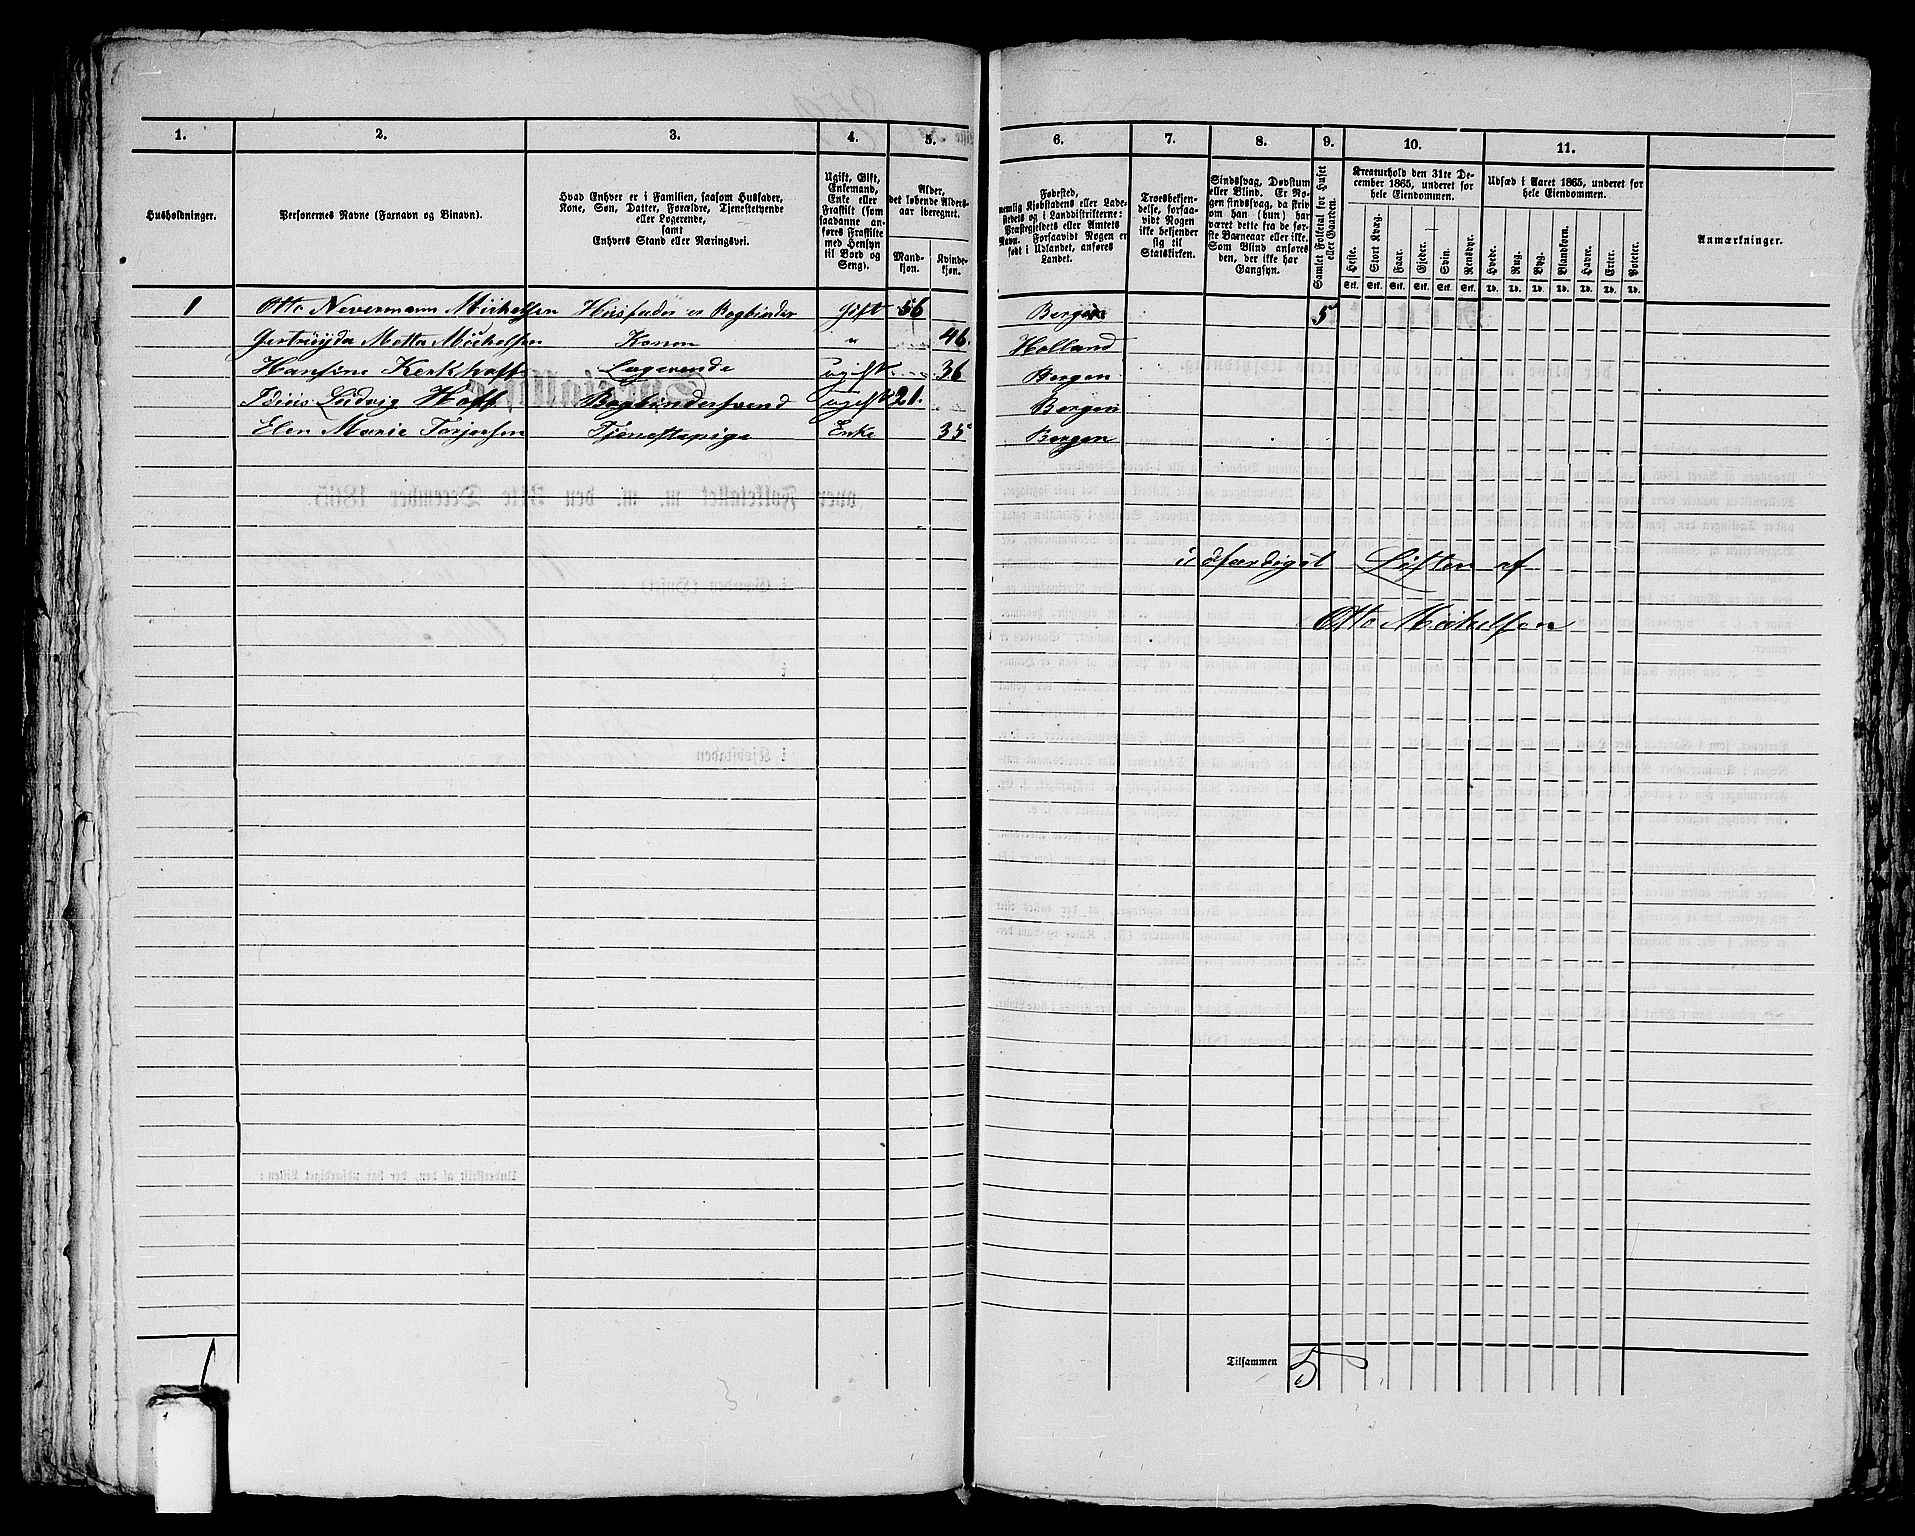 1. 2. 3. 4. 5. 6. 7. 8. 9. 10. 11.
Husholdninger.
Personernes Navne (Fornavn og Binavn).
Hvad Enhver er i Familien, saasom Husfader,
Kone, Søn, Datter, Forældre, Tjenestetyende
eller Logerende,
samt
Enhvers Stand eller Næringsvei.
Ugift, Gift,
Enkemand,
Enke eller
Fraskilt (som
saadanne an-
føres Fraskilte
med Hensyn
til Bord og
Seng).
Alder,
det løbende Alders-
aar iberegnet.
Mand-
kjøn.
Kvinde-
kjøn.
Fødested,
nemlig Kjøbstadens eller Lade-
stedets og i Landdistrikterne:
Præstegjeldets eller Amtets
Navn. Forsaavidt Nogen er
født i Udlandet, anføres
Landet.
Troesbekjen-
delse, forsaa-
vidt Nogen
ikke bekjender
sig til
Statskirken.
Sindssvag, Døvstum
eller Blind. Er No-
gen sindssvag, da skriv
om han (hun) har
været dette fra de før-
ste Barneaar eller ikke.
Som Blind anføres
den, der ikke har
Gangsyn.
Samlet Folketal for Huset
eller Gaarden.
Kreaturhold den 31te De-
cember 1865, underet for
hele Eiendommen.
Heste. Stort Kvæg. Faar. Gjeder. Svin. Rensdyr.
Stk. Stk. Stk. Stk. Stk. Stk.
Udsæd i Aaret 1865, underet for
hele Eiendommen.
Hvede. Rug. Byg. Blandkorn. Havre. Erter. Poteter.
Td. Td. Td. Td. Td. Td. Td.
Anmærkninger.
1 Otto Nevermann Mickelsen Husfader er Bogbinder Gift 56 Bergen 5
Mette Mickelsen Konen " 46. Holland
Hansine Kerkhoff Logerende ugift 36 Bergen
Ludvig Hoff Bogbindersvend ugift 21. Bergen
Elen Marie Torjersen Tjenestepige Enke 35 Bergen
udfærdiget Listen af
Otto Mickelsen
1 Tilsammen 5